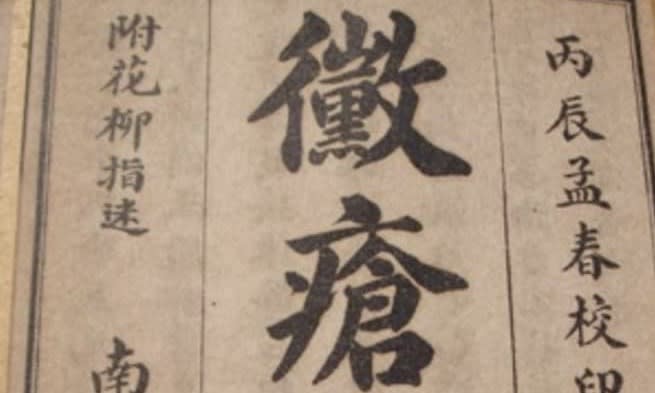 丙辰孟春校印
黴瘡
附花柳指迷
南